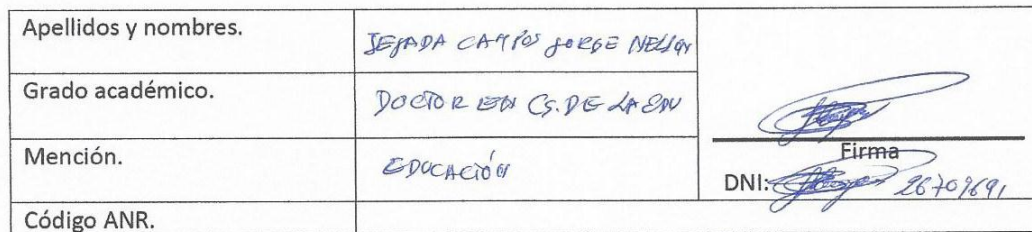 Apellidos y nombres.
TEJADA CAMPOS JORGE NELSON
Grado académico.
DOCTOR EN CS. DE LA EDU
Mención.
EDUCACIÓN
Firma
DNI: 26709691
Código ANR.